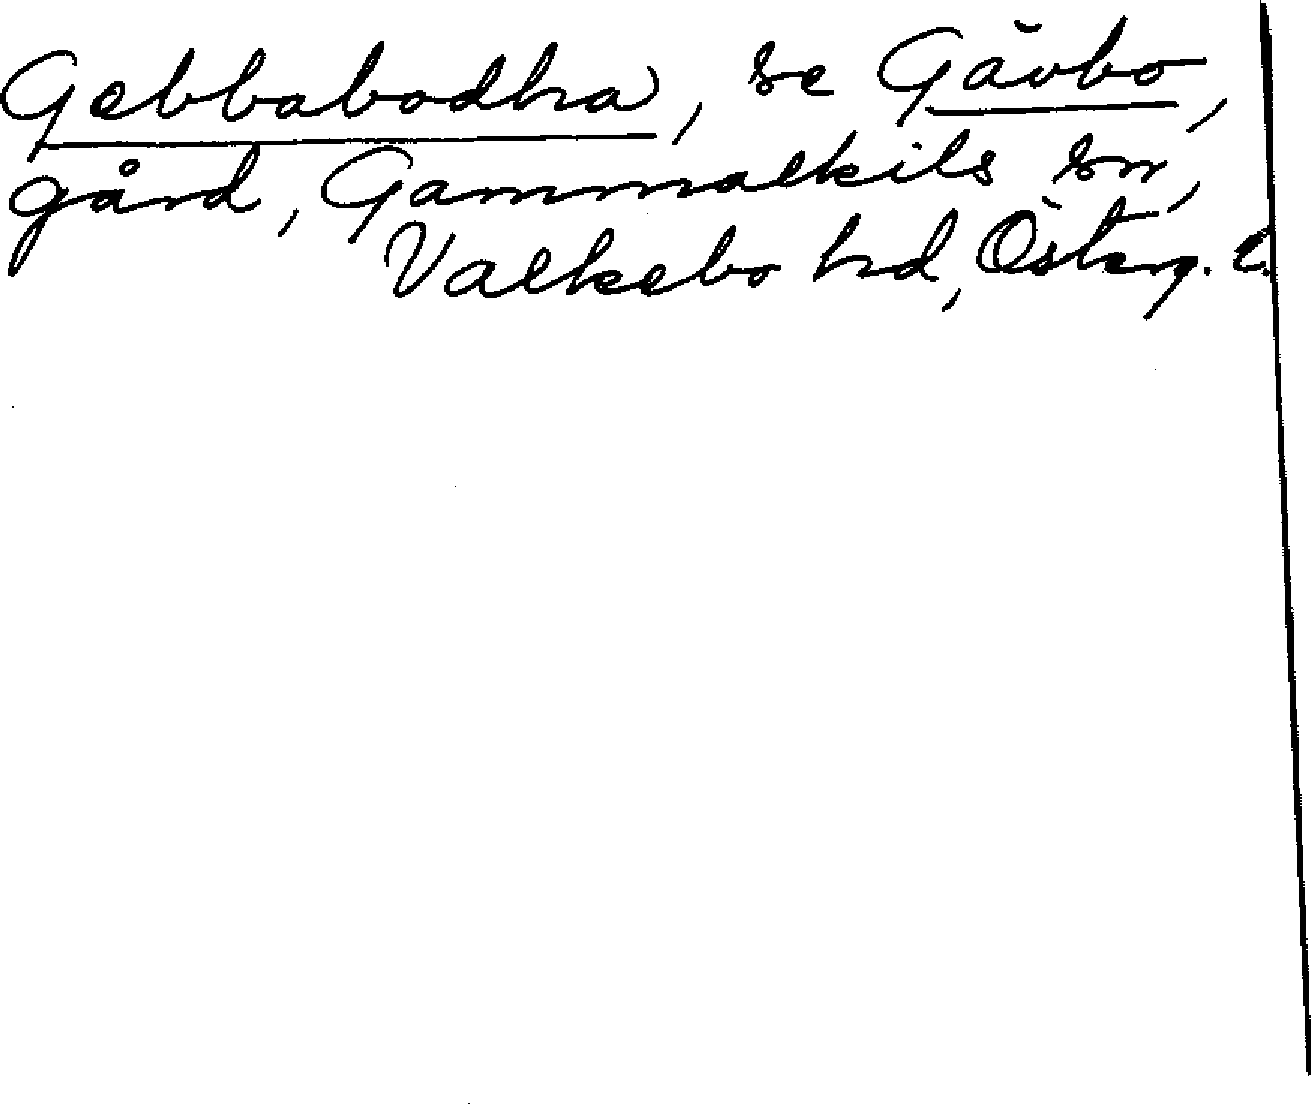 Gebbabodha, se Gävbo,
gård, Gammalkils sn,
Valkebo hd, Österg. l.